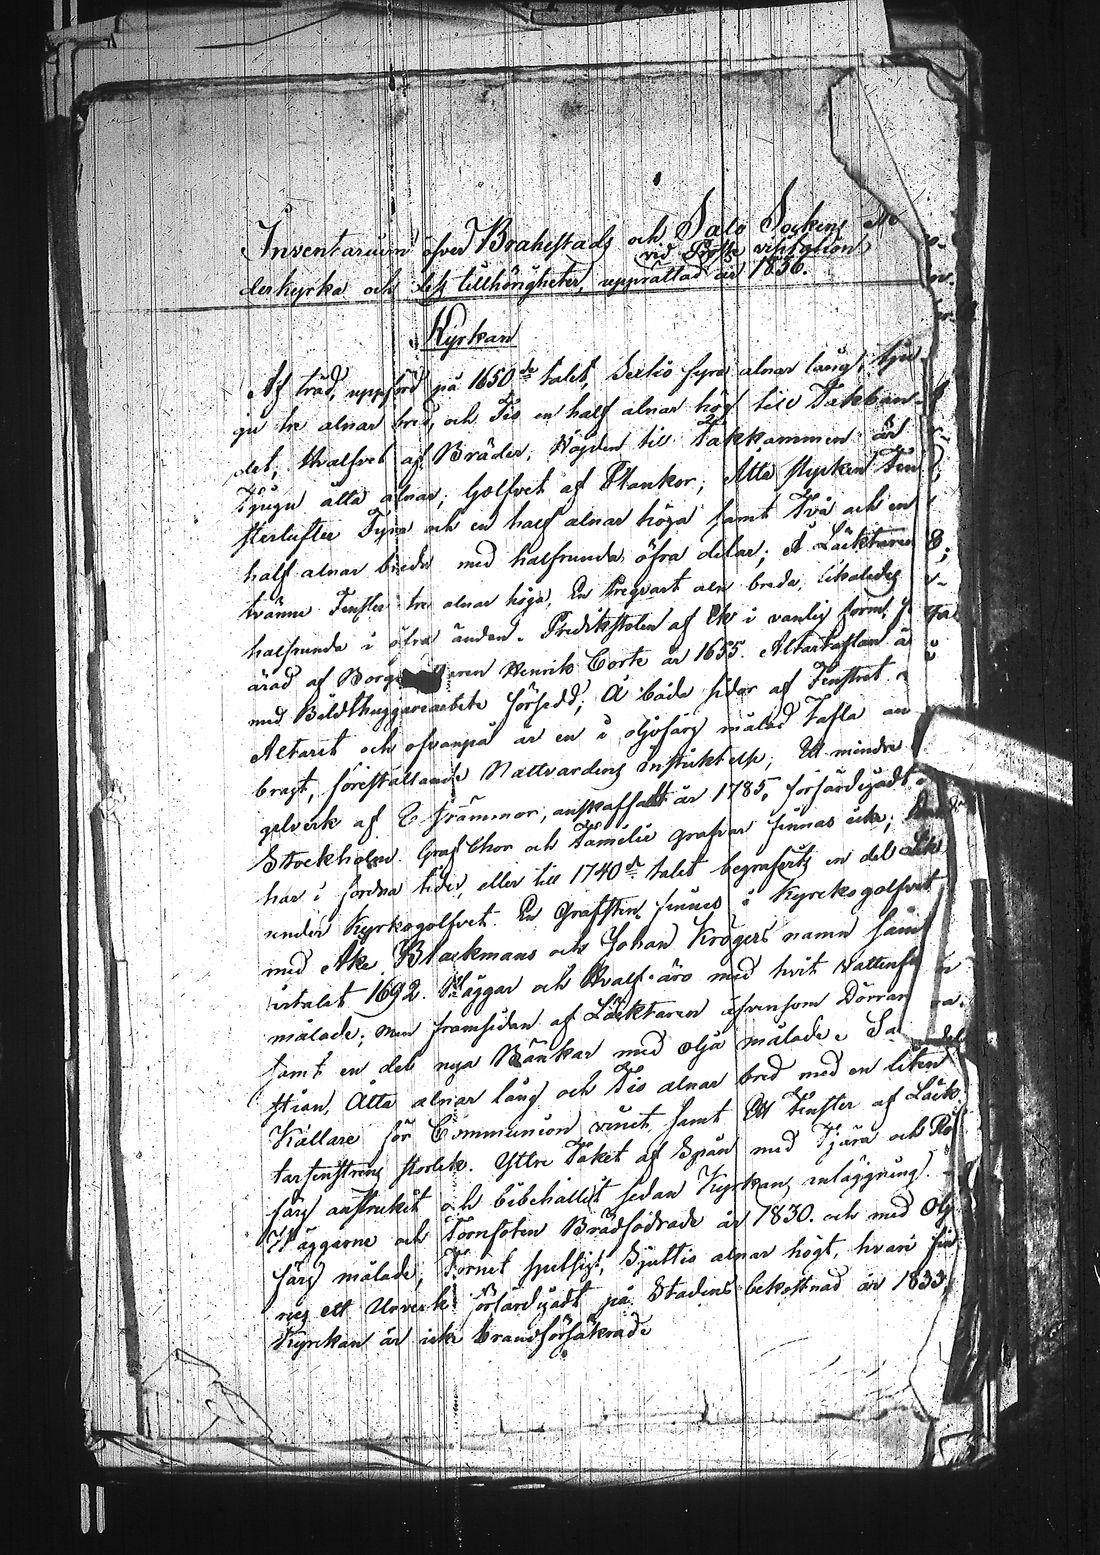 Inventarium öfver Brahestads och Salo Sockens Mo
vid Prosts visitation
derkyrka och dess tillhörigheter, upprättad år 1836.
Kyrkan
Af träd, uppförd på 1650 de talet, Sextio fyra alnar lång, tju
gu tre alnar bred, och Tio en half alnar hög till Takban
det; Hvalfvet af Bräder; Höjden till Takkammen är
Tjugu åtta alnar; Golfvet af Plankor; Åtta stycken Fen
sterlufter Fyra och en half alnar höga samt Två och en
half alnar breda med halfrunda öfra delar; å Läcktaren
tvänne Fenster tre alnar höga, En trequart aln breda, likaledes
halfrunda i öfra ändan. Predikstolen af Ek i vanlig form, f
ärad af Borg aren Henrik Corte år 1655. Altartaflan ä
med Bildthuggarearbete försedd; Å båda sidor af Fenstret
Altaret och ofvanpå är en i oljefärg målad Tafla an
bragt, föreställande Nattvardens instiktelse; Ett mindre
gelverk af 6 stämmor, anskaffadt år 1785, förfärdigadt
Stockholm. Graf Chor och Familie grafvar finnas icke;
har i fordna tider, eller till 1740 de talet begrafvits en del Lik
under Kyrkogolfvet. En Grafsten finnes i Kyrckogolfvet
med Åke Blackmans och Johan Krögers namn samt
årtalet 1692. Väggar och Hvalf äro med hvit vattenfä
målade; men framsidan af Läcktaren äfvensom Dörrar
samt en del nya Bänkar med olja målade. Sa
stian, Åtta alnar lång och Tio alnar bred med en liten
Källare för Communion vinet, samt Ett Fenster af Läck
tarfenstrens storlek. Yttre Taket af Spån med Tjära och Rö
färg anstruket och bibehållit sedan Kyrkans anläggning.
Väggarne och Tornfoten Brädfodrade år 1830. och med Olj
färg målade; Tornet spetsigt, Sjuttio alnar högt, hvari fin
nes ett Urverk förfärdigadt på Stadens bekostnad år 1833.
Kyrckan är icke brandförsäkrad.